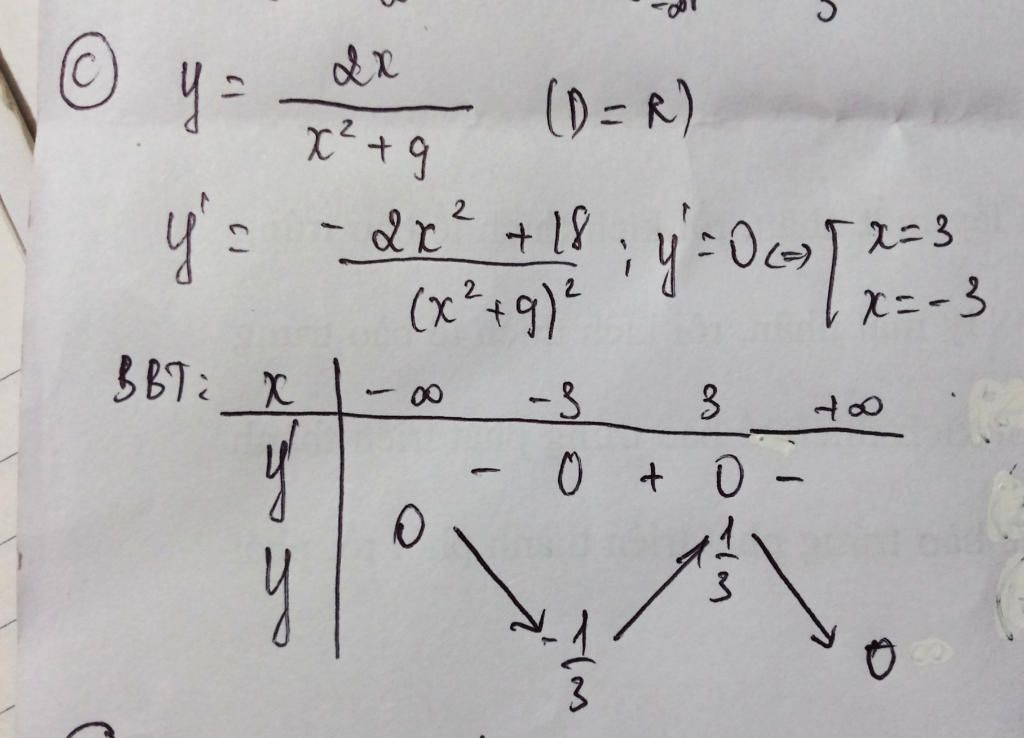 ⓒ y = 2x / (x² + 9) (D = R)
y' = (-2x² + 18) / (x² + 9)² ; y' = 0 ⇔ [ x = 3
x = -3
BBT: x | -∞ -3 3 +∞
y' | - 0 + 0 -
y | 0 ↘ -1/3 ↗ 1/3 ↘ 0